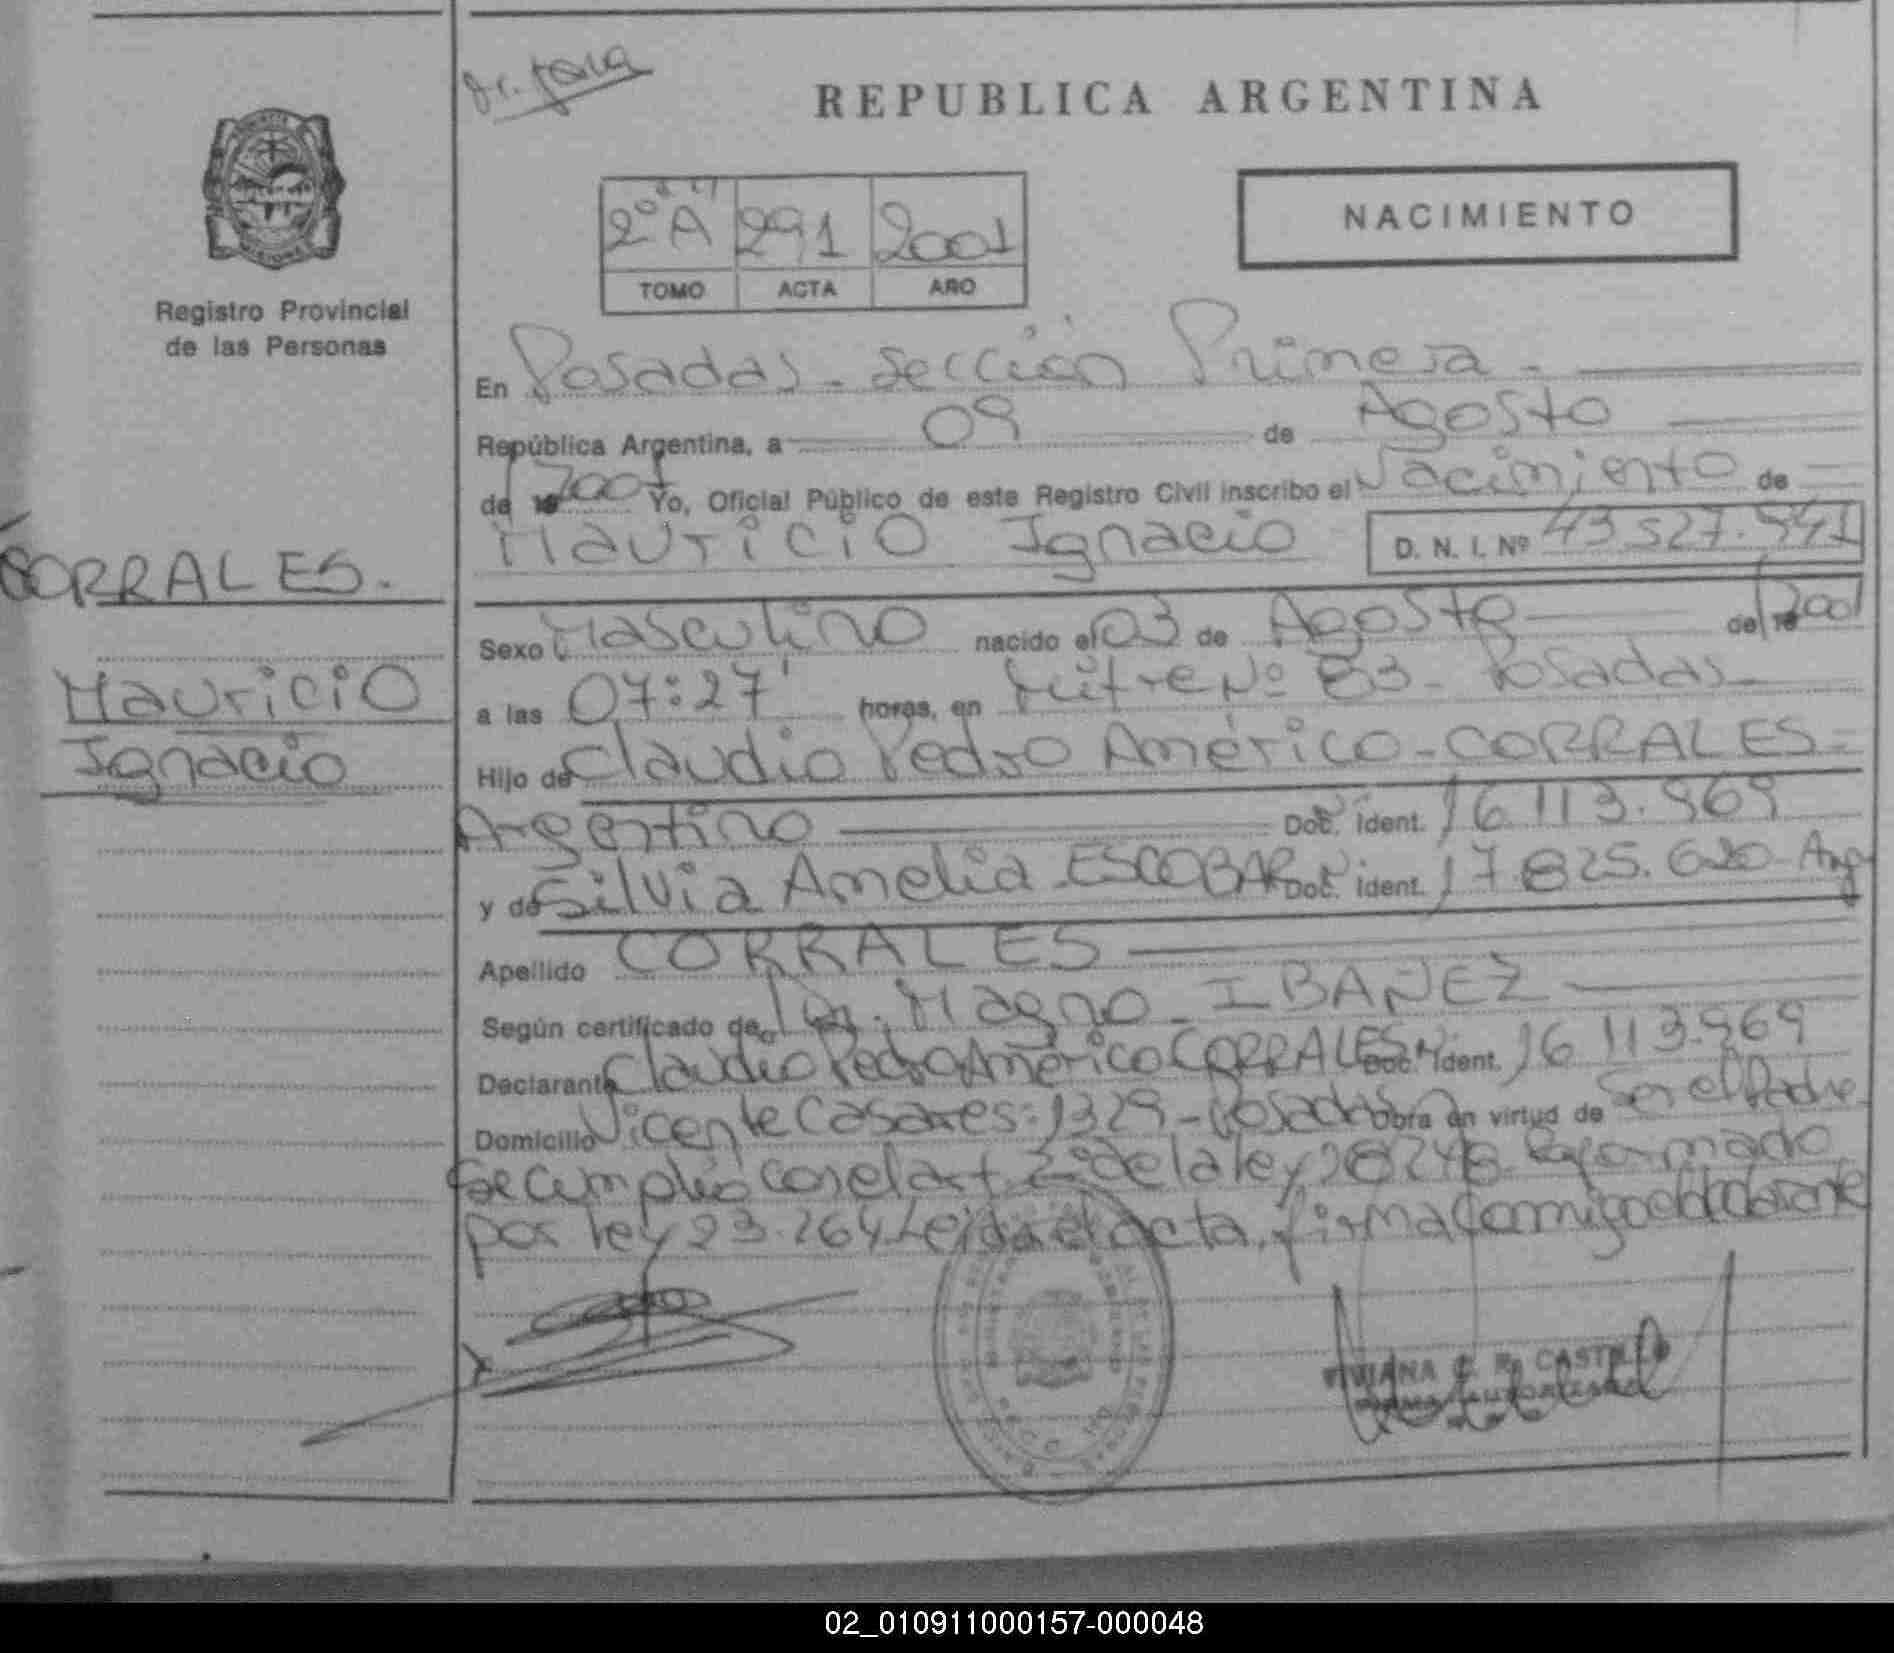 REPUBLICA ARGENTINA
NACIMIENTO
2º "A" 291 2001
TOMO ACTA AÑO
Registro Provincial
de las Personas
En Posadas - Sección Primera -
República Argentina, a 09 de Agosto
de 2001 Yo, Oficial Público de este Registro Civil inscribo el Nacimiento de
Mauricio Ignacio D. N. I. Nº 43 527.541
CORRALES.
Mauricio
Ignacio
Sexo Masculino nacido el 03 de Agosto de 2001
a las 07:27' horas, en Mitre Nº 83 - Posadas -
Hijo de Claudio Pedro Américo - CORRALES -
Argentino Doc. Ident. 16 113.969
y de Silvia Amelia - ESCOBAR Doc. Ident. 17 825.620 - Arg
Apellido CORRALES
Según certificado de Dr. Magno - IBAÑEZ
Declarante Claudio Pedro Américo CORRALES Doc. Ident. 16 113.969
Domicilio Vicente Casares: 1329 - Posadas Obra en virtud de Ser el Padre
Se cumplió con el art 2º de la ley 18248 - Reformado
por ley 23.264 Leída el acta, firma conmigo el declarante
VIVIANA E. R. CASTILLO
02_010911000157-000048